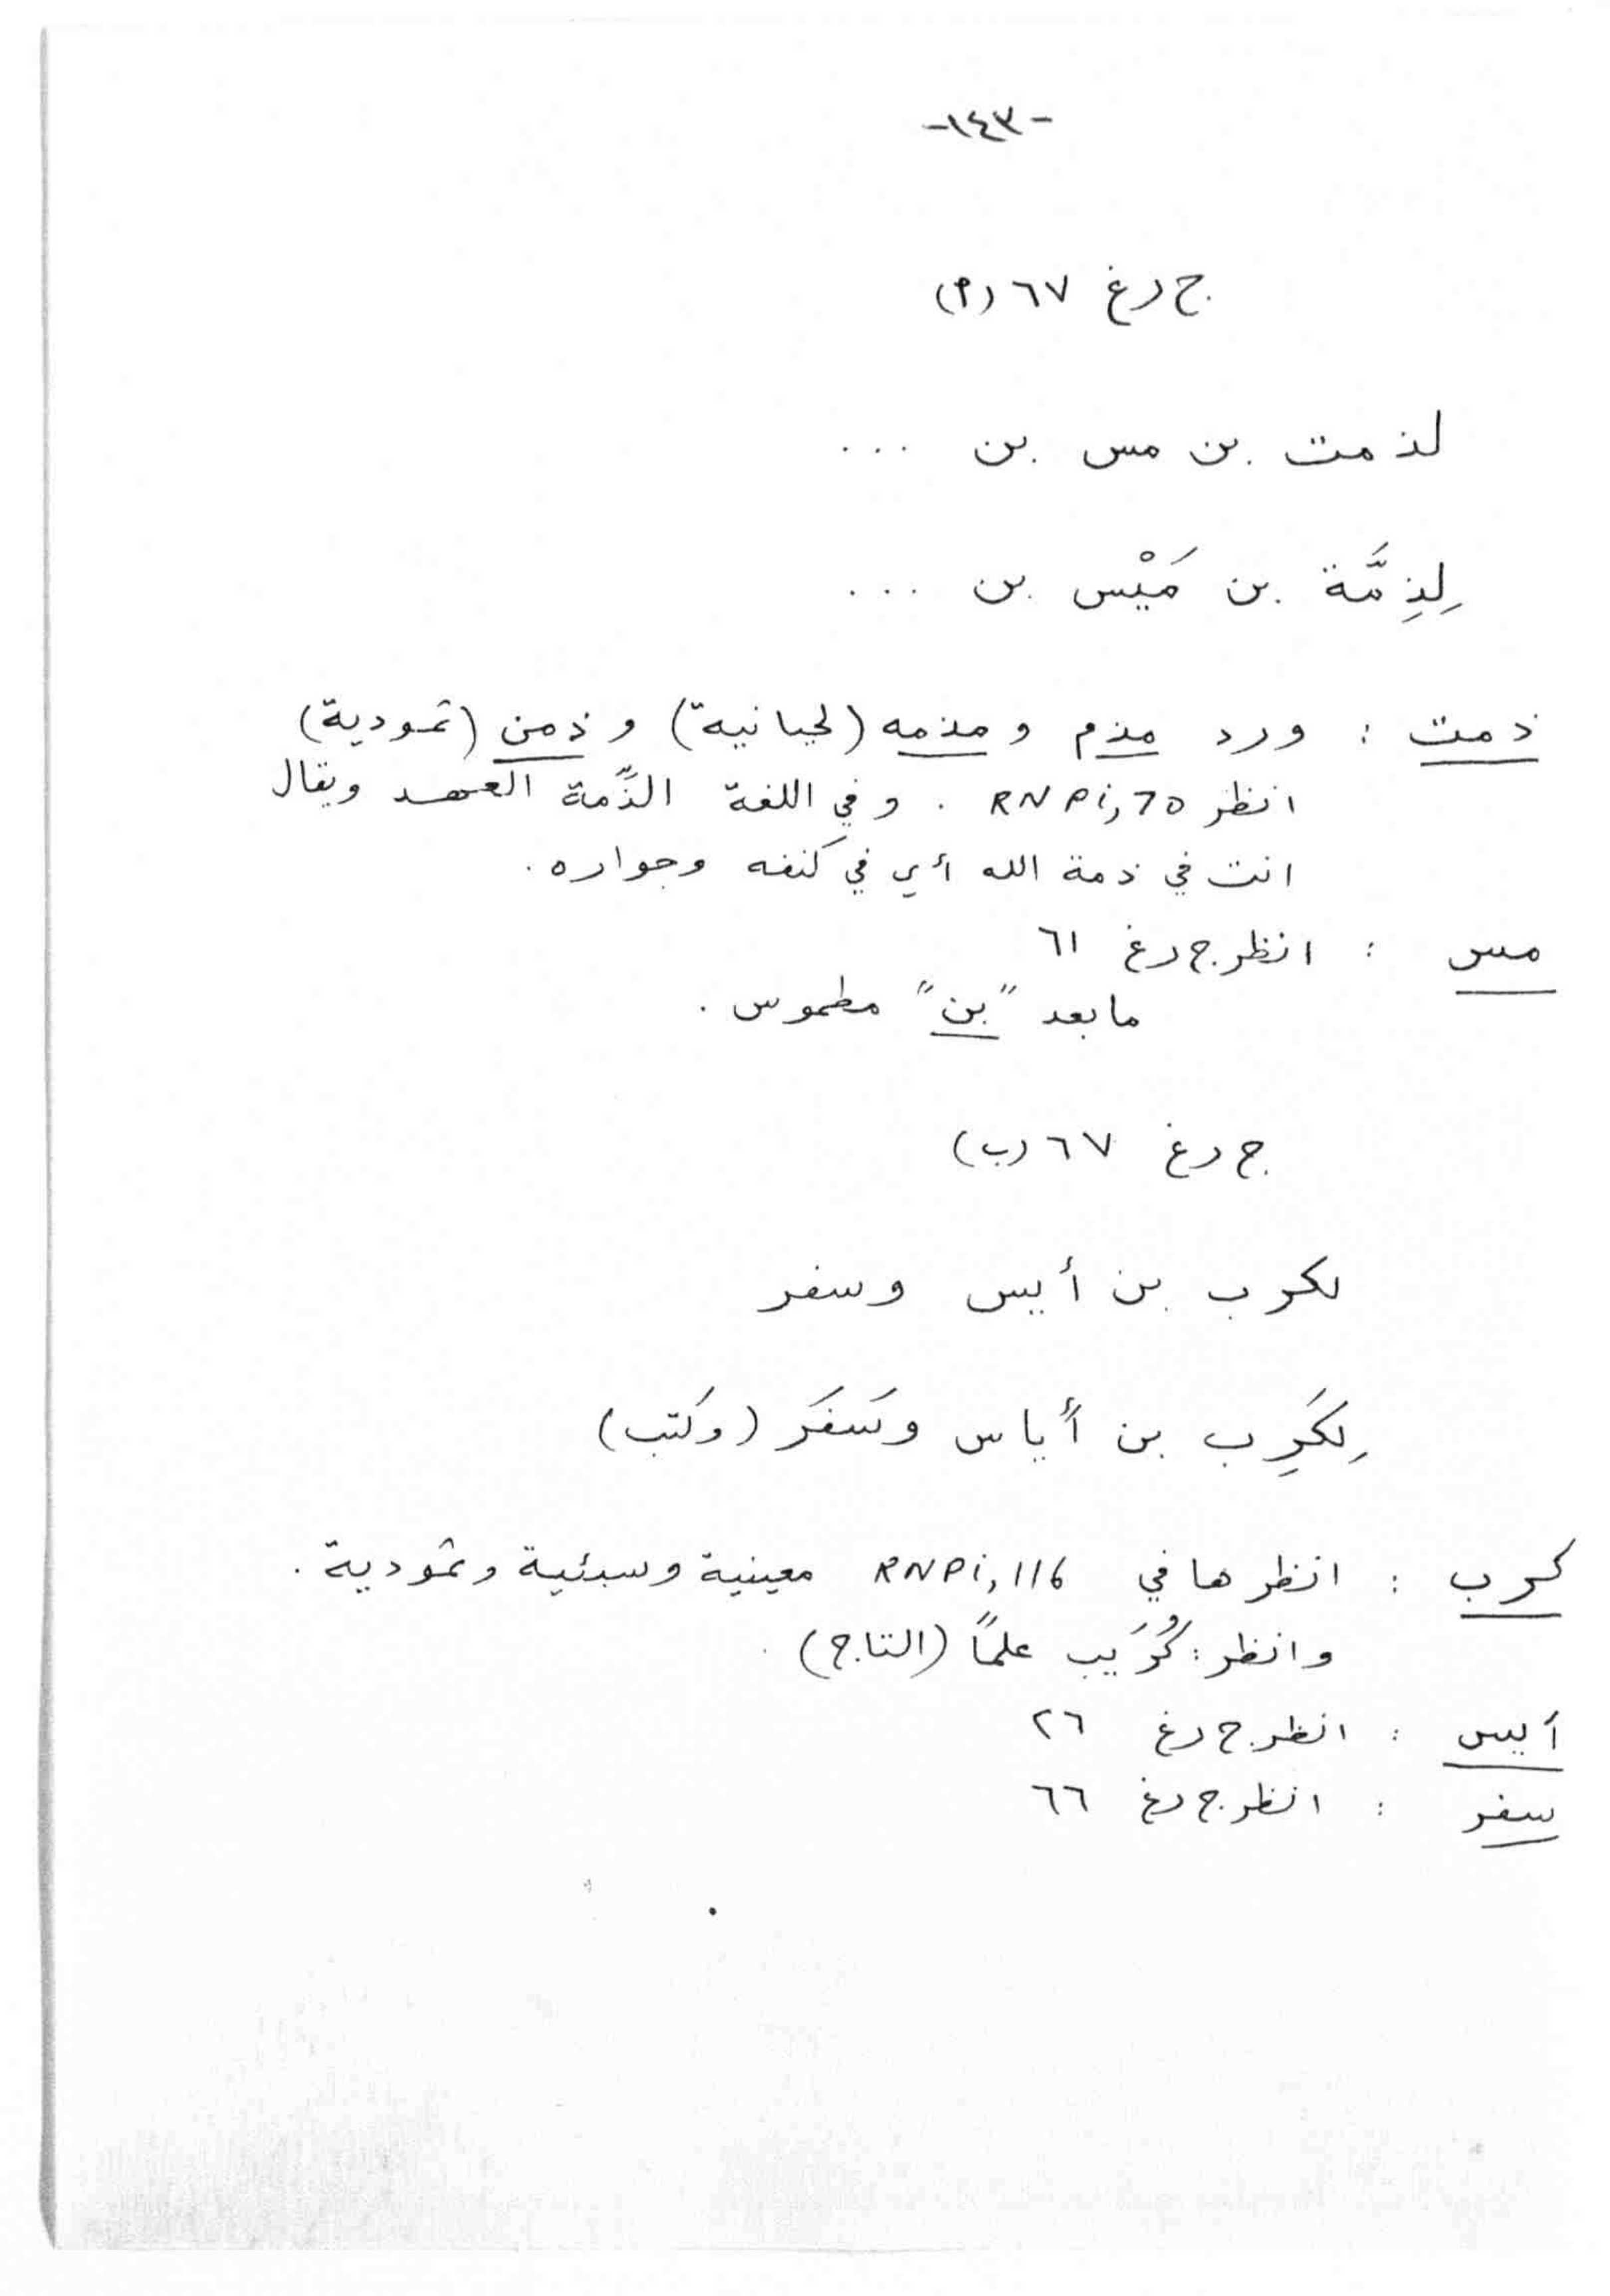 -١٤٣-
ج رغ ٦٧ (٢)
لذمت بن مس بن ...
لِذِمَّة بن مَيْس بن ...
ذمت : ورد مذم و مذمه (لحيانية) و ذمن (ثمودية)
انظر RNP i, 70 . وفي اللغة الذِّمة العهد ويقال
انت في ذمة الله أي في كنفه وجواره .
مس : انظر ج رغ ٦١
ما بعد "بن" مطموس .
ج رغ ٦٧ (ب)
لكرب بن أيس وسفر
لِكَرِب بن أَياس وسَفَر (وكتب)
كرب : انظرها في RNP i, 116 معينية وسبئية وثمودية .
وانظر : كُرَيب علماً (التاج) .
أيس : انظر ج رغ ٢٦
سفر : انظر ج رغ ٦٦